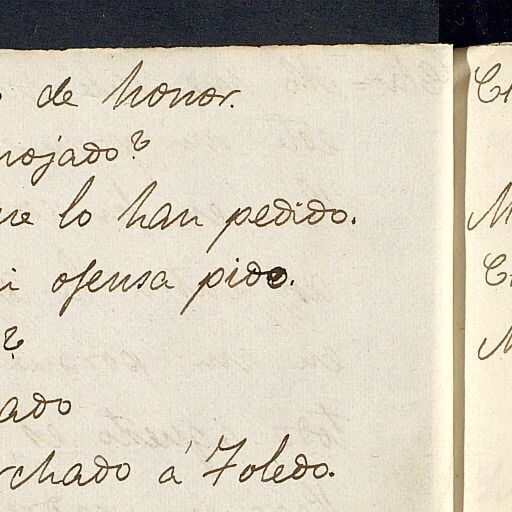 de honor.
nojado?
ue lo han pedido.
i ofensa pido.
?
ado
rchado á Toledo.